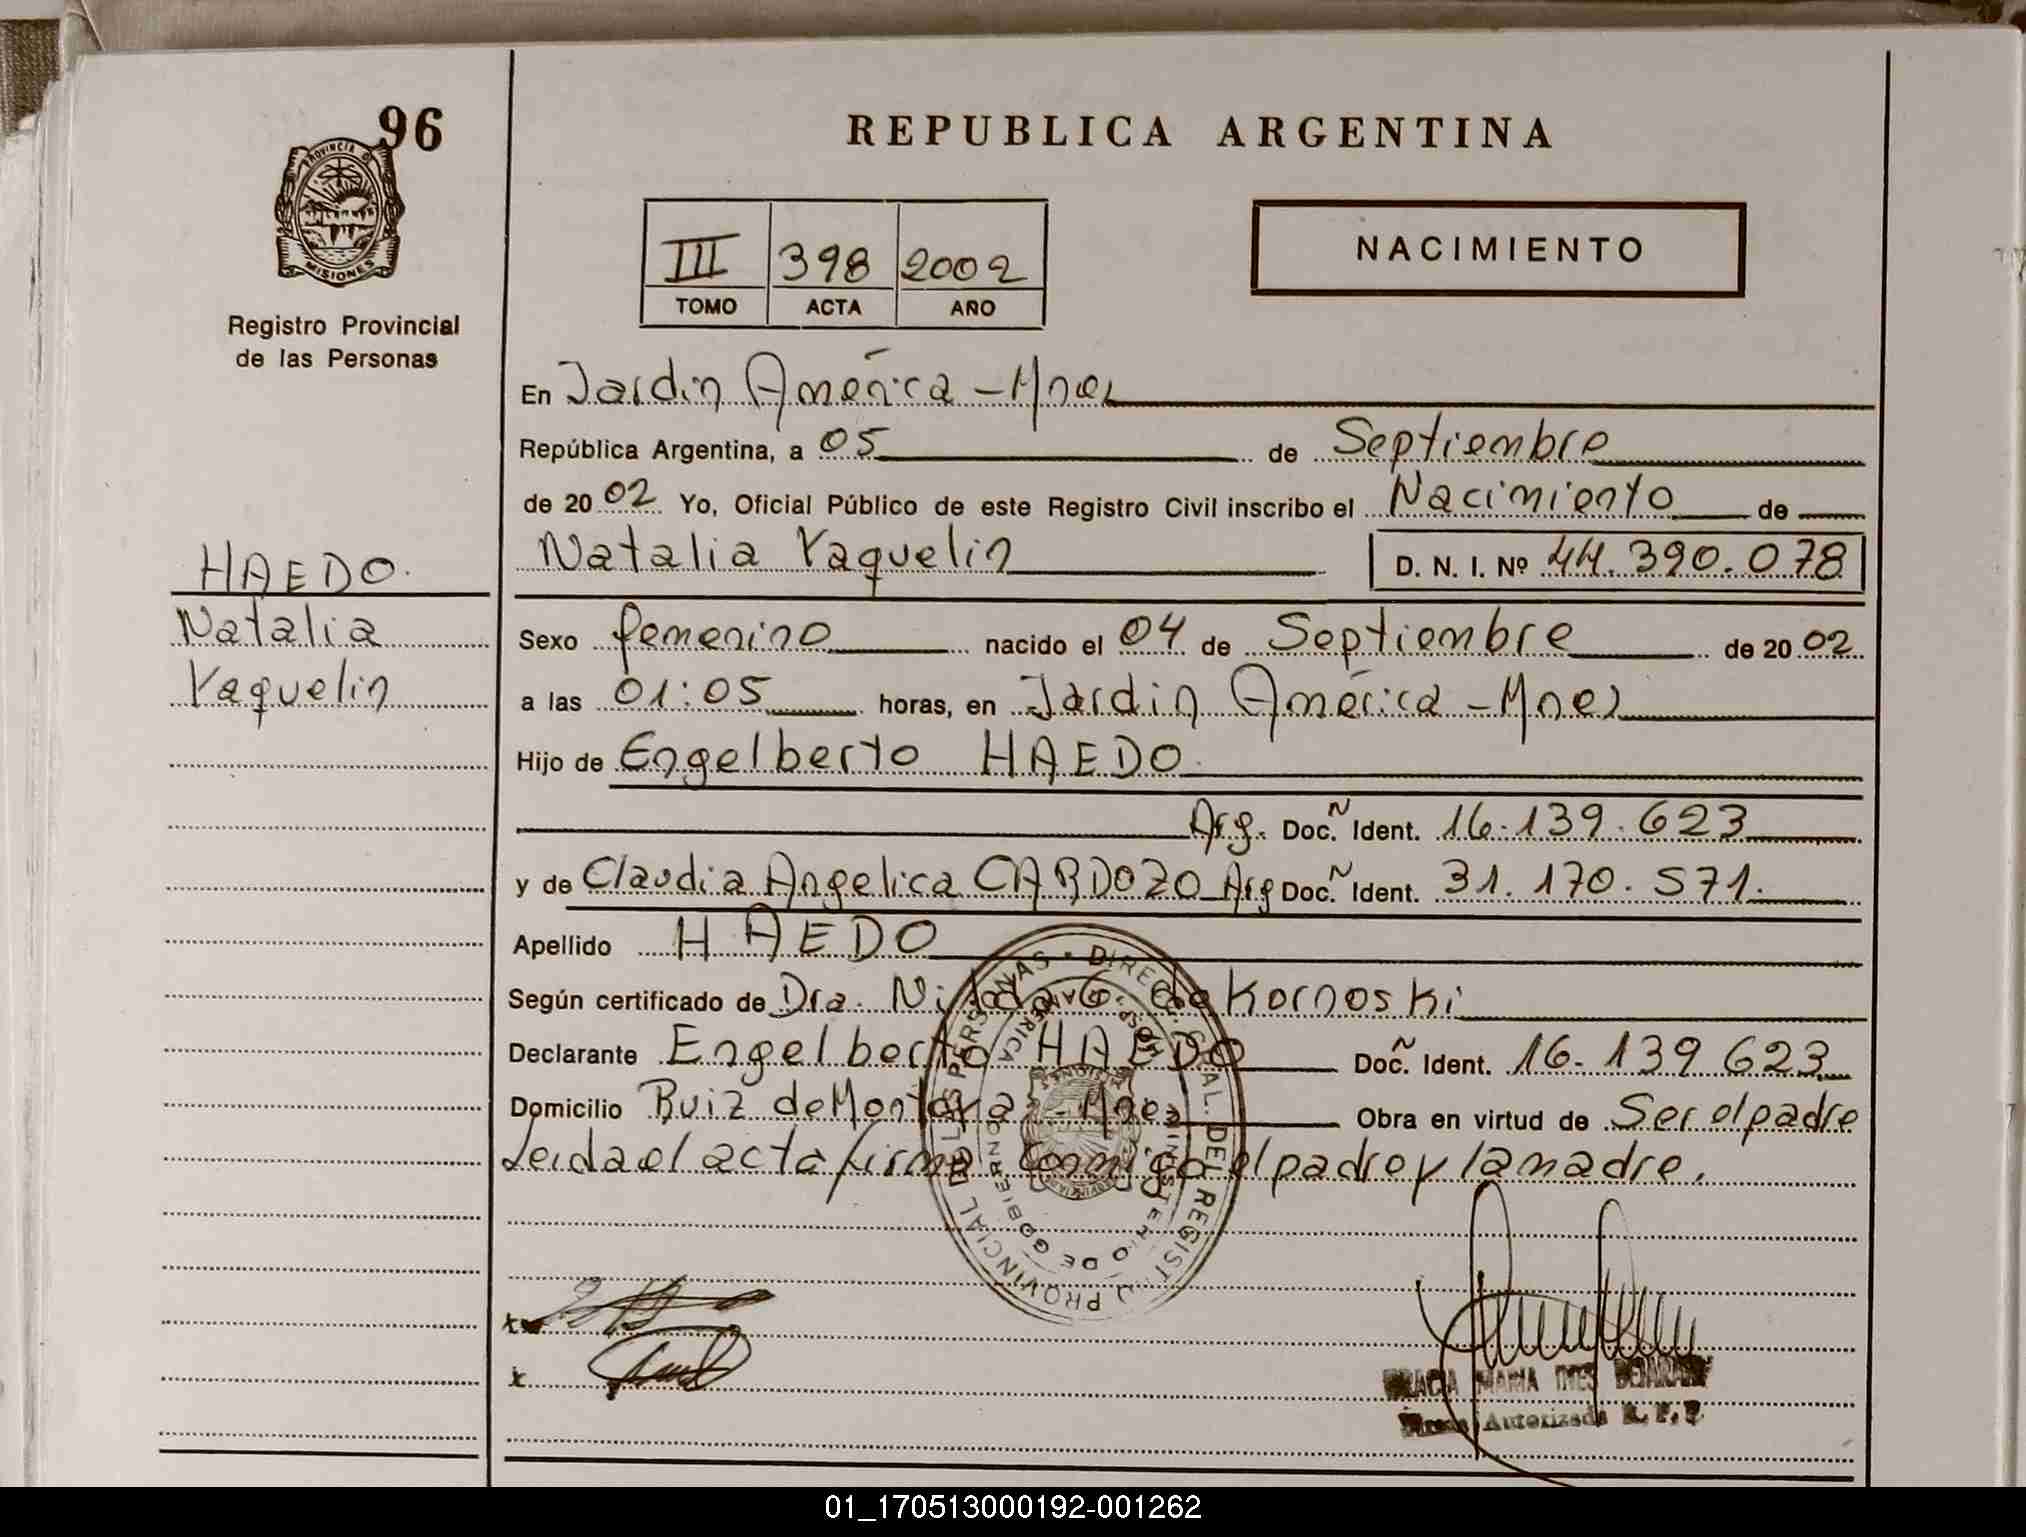 96
PROVINCIA D
MISIONES
Registro Provincial
de las Personas
HAEDO.
Natalia
Yaquelin
REPUBLICA ARGENTINA
III 398 2002
TOMO ACTA AÑO
NACIMIENTO
En Jardin América - Mnes
República Argentina, a 05 de Septiembre
de 2002 Yo, Oficial Público de este Registro Civil inscribo el Nacimiento de
Natalia Yaquelin D. N. I. Nº 44.390.078
Sexo femenino nacido el 04 de Septiembre de 2002
a las 01:05 horas, en Jardin América - Mnes
Hijo de Engelberto HAEDO
Arg. Doc. Ñ Ident. 16.139.623
y de Claudia Angelica CARDOZO Arg Doc. Ñ Ident. 31.170.571.
Apellido HAEDO
Según certificado de Dra. Nilda G. de Kornoski
Declarante Engelberto HAEDO Doc. Ñ Ident. 16.139.623
Domicilio Ruiz de Montoya - Mnes Obra en virtud de Ser el padre
Leida el acta firma conmigo el padre y la madre.
DIREC. GRAL. DEL REGIST. PROVINCIAL DE LAS PERSONAS
MINISTERIO DE GOBIERNO
x
x
MARIA INES BEJARANO
Firma Autorizada R. P. P.
01_170513000192-001262